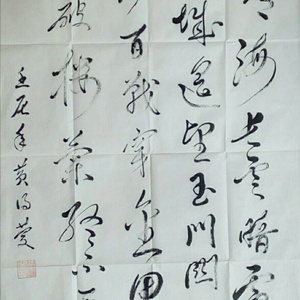 海長雲暗雪
城遥望玉門關
沙百戰穿金甲
破樓蘭終不
壬辰年黄